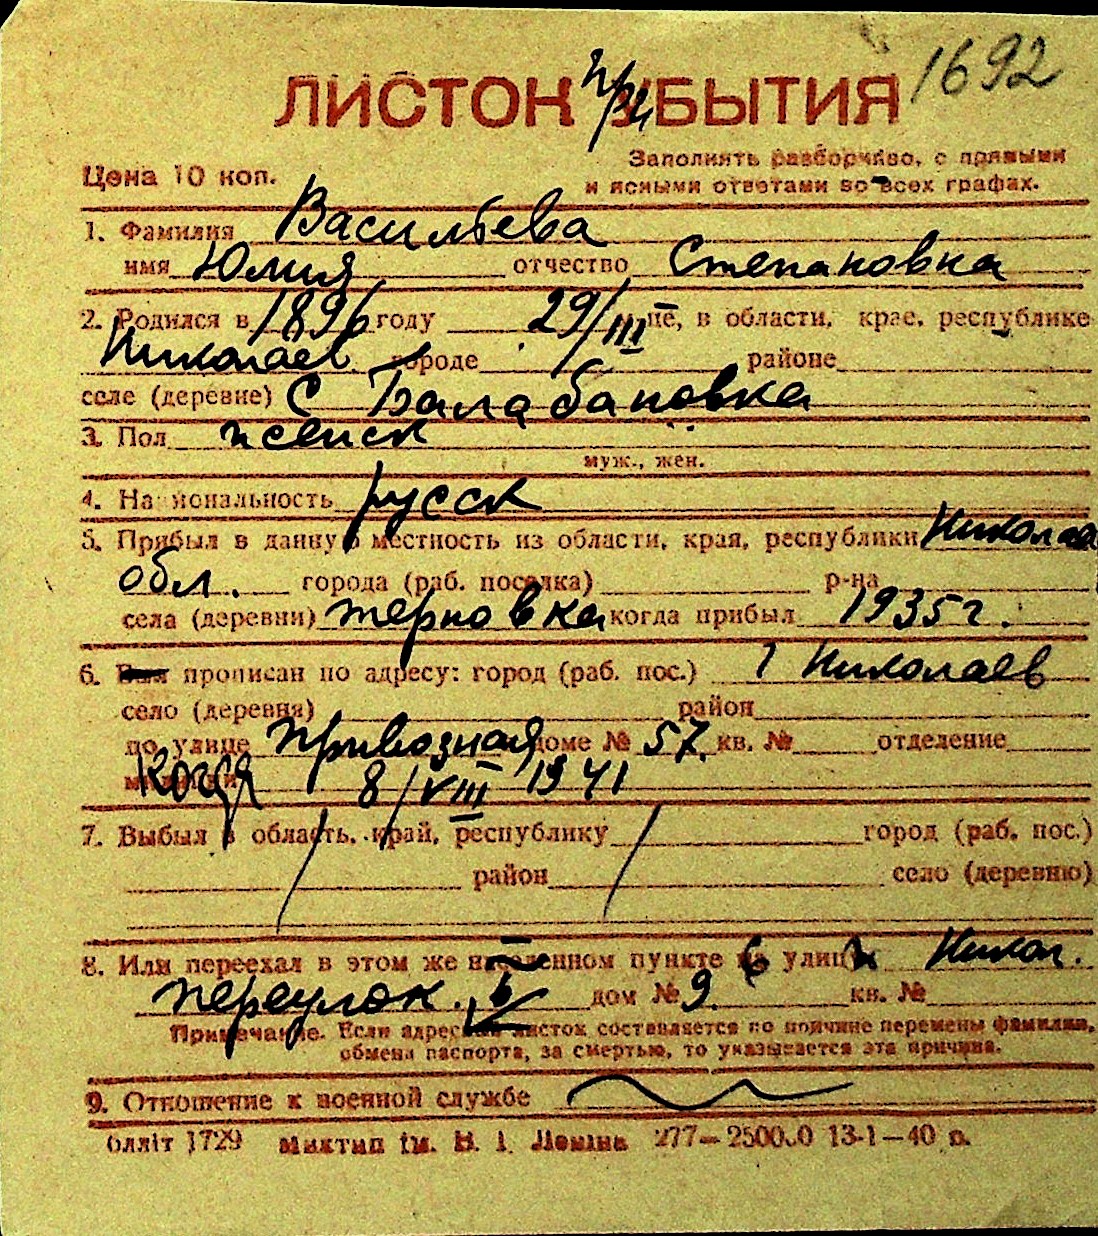 1692
ЛИСТОК при УБЫТИЯ
Цена 10 коп.
Заполнять разборчиво, с прямыми
и ясными ответами во всех графах.
1. Фамилия Васильева
имя Юлия отчество Степановна
2. Родился в 1896 году 29/III м-це, в области, крае, республике
Николаев городе районе
селе (деревне) с Балабановка
3. Пол женск
муж., жен.
4. Национальность русск
5. Прибыл в данную местность из области, края, республики Николаев
обл. города (раб. поселка) р-на
села (деревни) терновка когда прибыл 1935 г.
6. Был прописан по адресу: город (раб. пос.) г Николаев
село (деревня) район
по улице Привозная доме № 57 кв. № отделение
милиции Когда 8/VIII 1941
7. Выбыл в область, край, республику город (раб. пос.)
район село (деревню)
8. Или переехал в этом же населенном пункте на улицу в Никол.
переулок. 5 дом № 9 кв. №
Примечание. Если адресный листок составляется по причине перемены фамилии,
обмена паспорта, за смертью, то указывается эта причина.
9. Отношение к военной службе
Олліт 1729 Миктип ім. В. І. Леніна 277—25000 13-1—40 р.